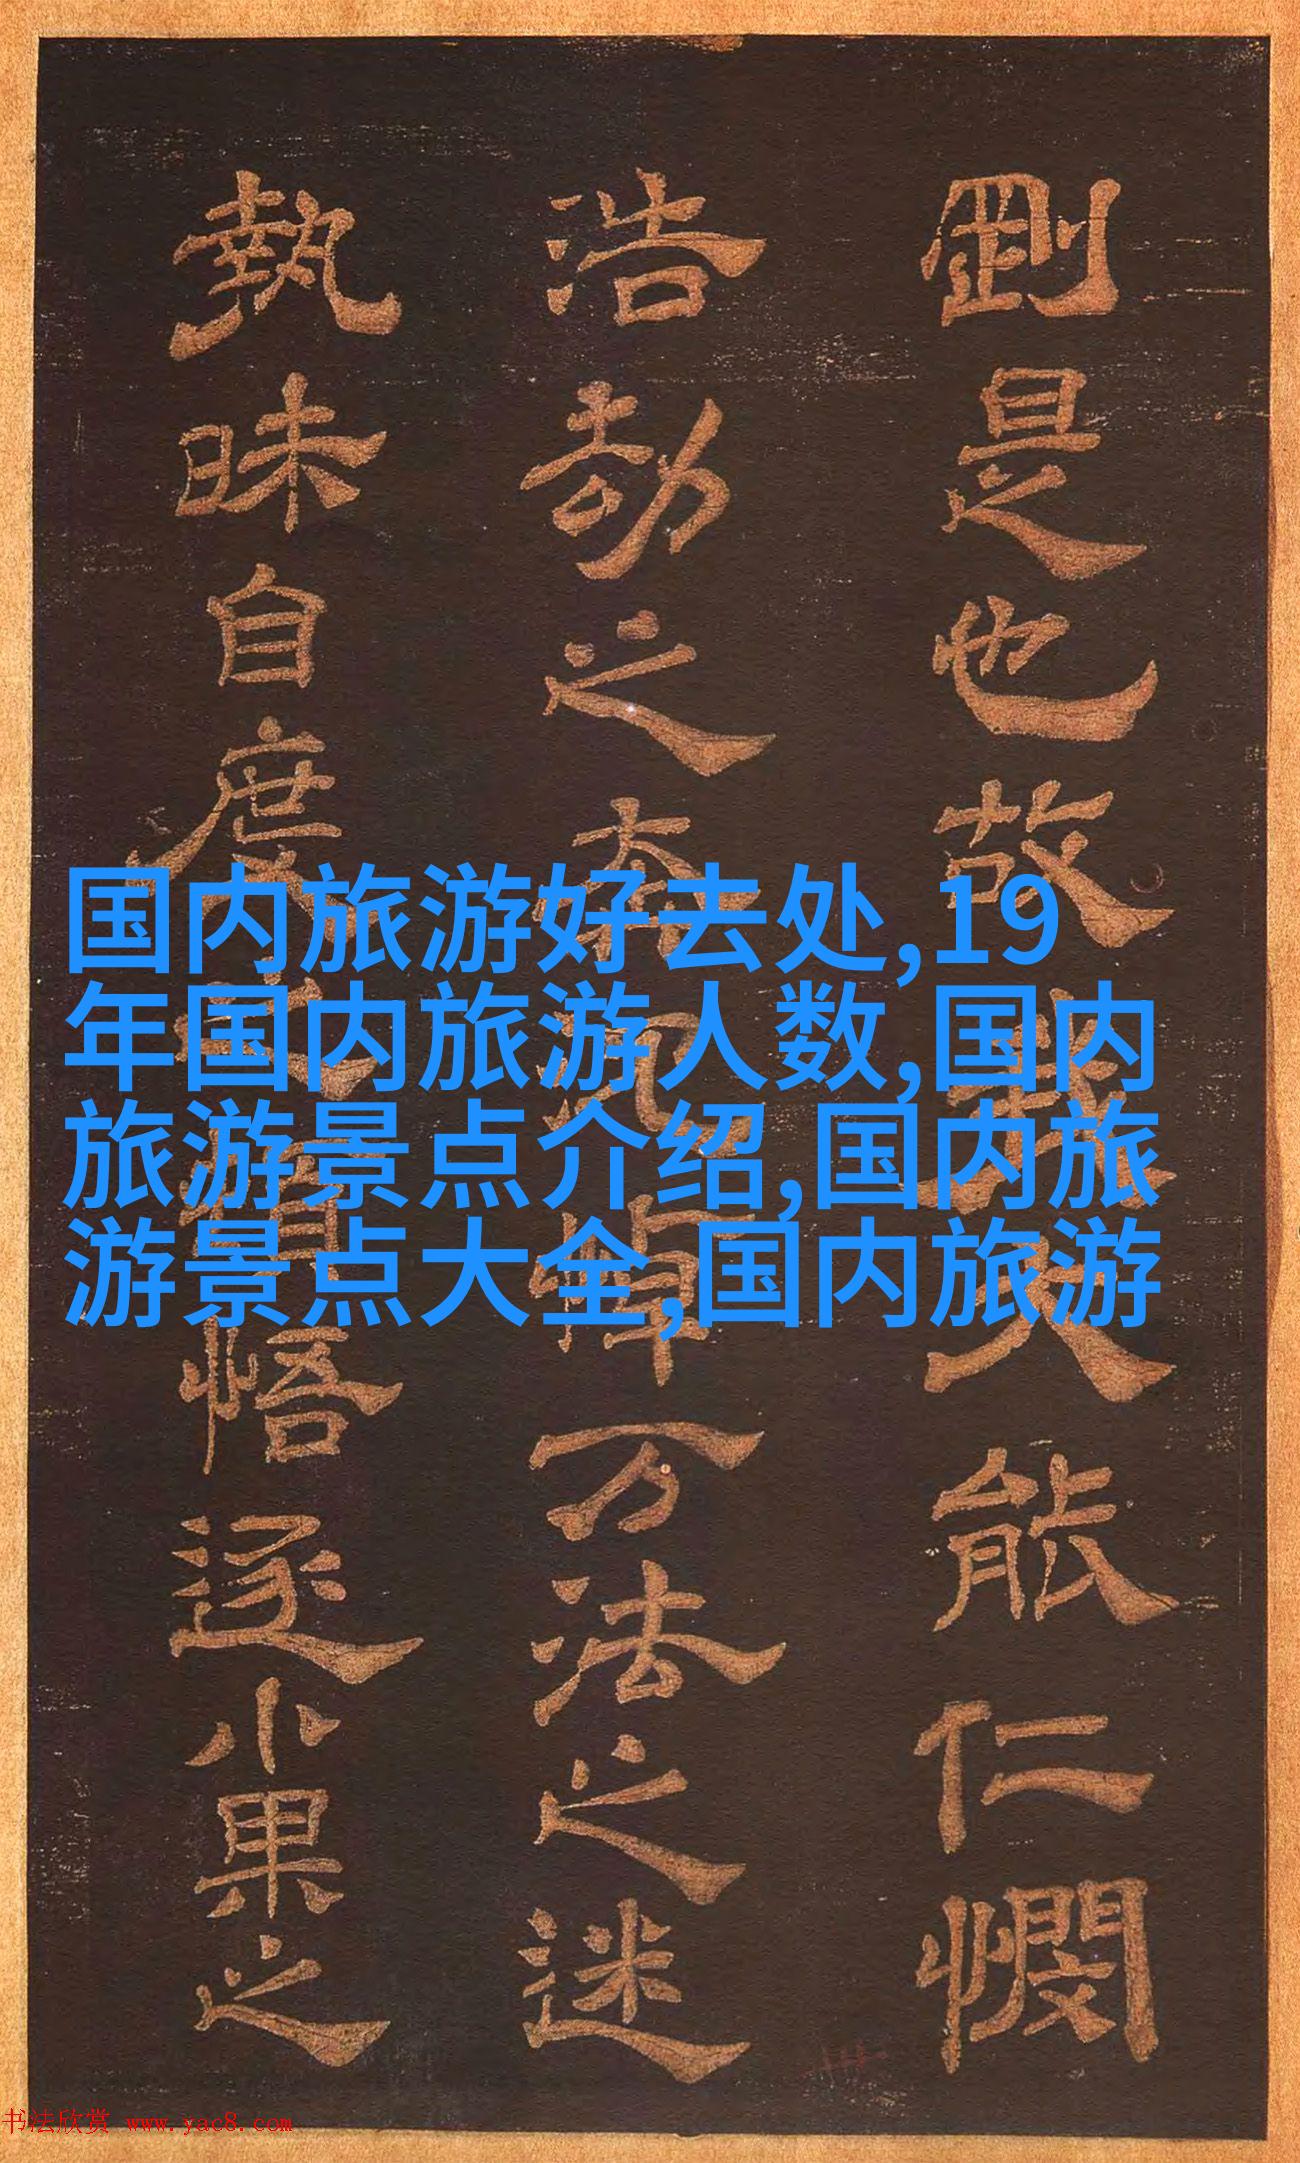 剛是也故我人能仁憫
浩劫之奔
万法之迷
執昧自度
悟逐小果之
国内旅游好去处,19
年国内旅游人数,国内
旅游景点介绍,国内旅
游景点大全,国内旅游
书法欣赏 www.yac8.com